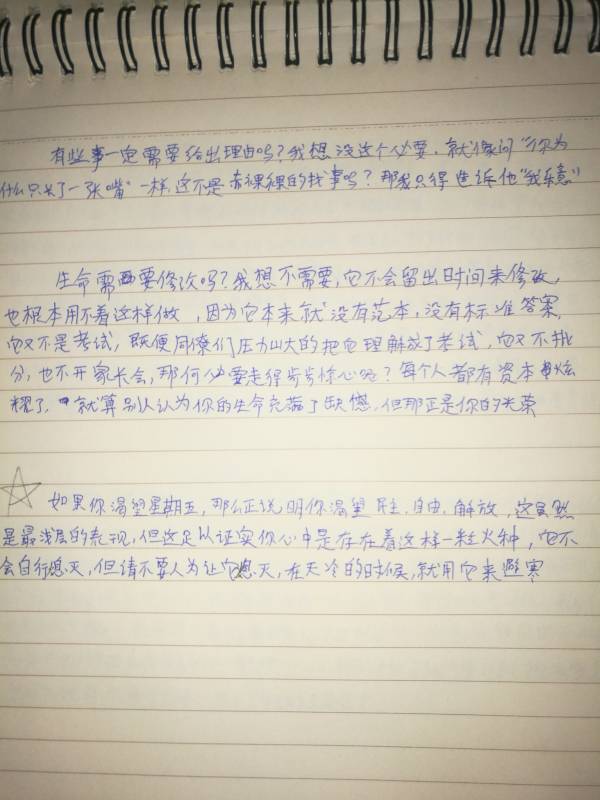 有些事一定需要给出理由吗？我想没这个必要，就像问“你为
什么只长了一张嘴”一样，这不是赤裸裸的找事吗？那我只得告诉他“我乐意”
生命需要修改吗？我想不需要，它不会留出时间来修改，
也根本用不着这样做，因为它本来就没有范本，没有标准答案，
它又不是考试，既便同僚们压力山大的把它理解成了考试，它又不批
分，也不开家长会，那何必要走得步步惊心呢？每个人都有资本炫
耀了，就算别人认为你的生命充满了缺憾，但那正是你的光荣
如果你渴望星期五，那么正说明你渴望民主、自由、解放，这虽然
是最浅层的表现，但这足以证实你心中是存在着这样一粒火种，它不
会自行熄灭，但请不要人为让它熄灭，在天冷的时候，就用它来避寒